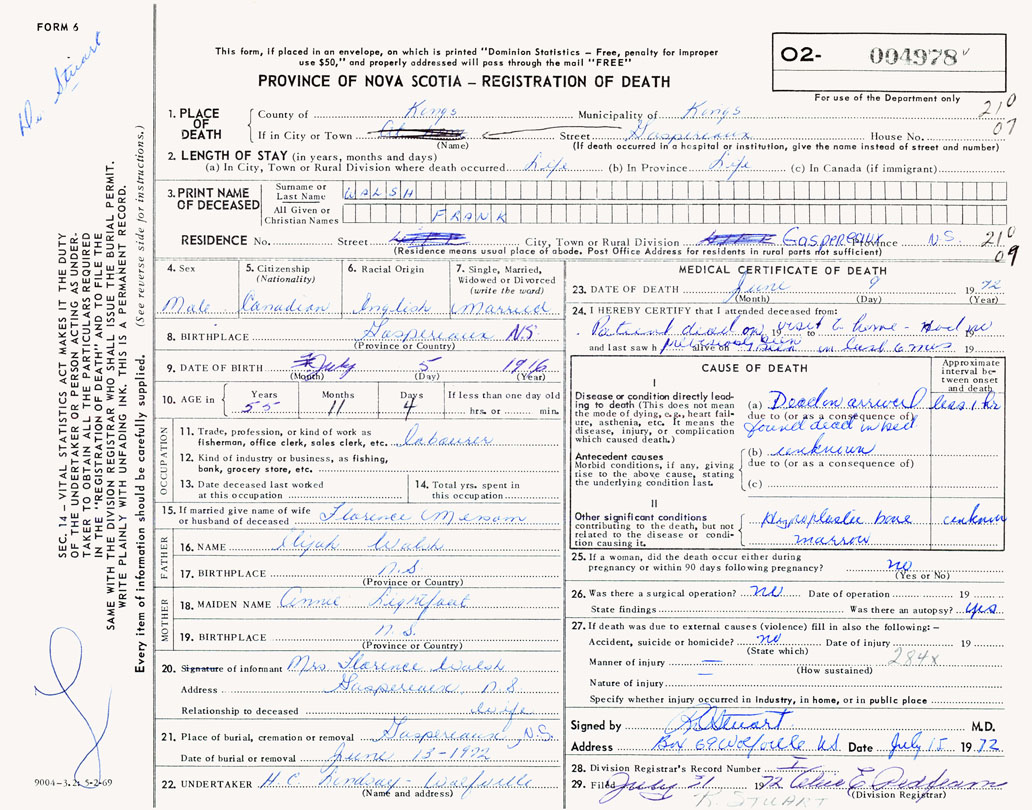 FORM 6
Dr. Stuart
This form, if placed in an envelope, on which is printed "Dominion Statistics – Free, penalty for improper
use $50," and properly addressed will pass through the mail "FREE"
PROVINCE OF NOVA SCOTIA – REGISTRATION OF DEATH
02- 004978
For use of the Department only
210
07
1. PLACE OF DEATH
County of Kings Municipality of Kings
If in City or Town Street Gaspereaux House No.
(Name) (If death occurred in a hospital or institution, give the name instead of street and number)
2. LENGTH OF STAY (in years, months and days)
(a) In City, Town or Rural Division where death occurred Life (b) In Province Life (c) In Canada (if immigrant)
3. PRINT NAME OF DECEASED
Surname or Last Name WALSH
All Given or Christian Names FRANK
RESIDENCE No. Street City, Town or Rural Division Gaspereaux Province N.S. 210
(Residence means usual place of abode. Post Office Address for residents in rural parts not sufficient) 09
4. Sex Male
5. Citizenship (Nationality) Canadian
6. Racial Origin English
7. Single, Married, Widowed or Divorced (write the word) Married
8. BIRTHPLACE Gaspereaux N.S.
(Province or Country)
9. DATE OF BIRTH July 5 1916
(Month) (Day) (Year)
10. AGE in Years 55 Months 11 Days 4 If less than one day old hrs. or min.
OCCUPATION
11. Trade, profession, or kind of work as
fisherman, office clerk, sales clerk, etc. labourer
12. Kind of industry or business, as fishing,
bank, grocery store, etc.
13. Date deceased last worked
at this occupation
14. Total yrs. spent in
this occupation
15. If married give name of wife
or husband of deceased Florence
FATHER
16. NAME Elijah Walsh
17. BIRTHPLACE N.S.
(Province or Country)
MOTHER
18. MAIDEN NAME Annie Lightfoot
19. BIRTHPLACE N.S.
(Province or Country)
20. Signature of informant Mrs Florence Walsh
Address Gaspereaux, N.S
Relationship to deceased wife
21. Place of burial, cremation or removal Gaspereaux, N.S.
Date of burial or removal June 13-1972
22. UNDERTAKER H.C. Lindsay - Wolfville
(Name and address)
MEDICAL CERTIFICATE OF DEATH
23. DATE OF DEATH June 9 1972
(Month) (Day) (Year)
24. I HEREBY CERTIFY that I attended deceased from:
Patient dead on 19 visit to home - Had not 19
and last saw h previously been alive on seen in last 6 mos 19
CAUSE OF DEATH
Approximate interval between onset and death
I
Disease or condition directly leading to death (This does not mean the mode of dying, e.g. heart failure, asthenia, etc. It means the disease, injury, or complication which caused death.)
(a) Dead on arrival less 1 hr
due to (or as a consequence of)
found dead in bed
Antecedent causes
Morbid conditions, if any, giving rise to the above cause, stating the underlying condition last.
(b) unknown
due to (or as a consequence of)
(c)
II
Other significant conditions
contributing to the death, but not related to the disease or condition causing it.
Hypoplastic bone marrow unknown
25. If a woman, did the death occur either during
pregnancy or within 90 days following pregnancy? no
(Yes or No)
26. Was there a surgical operation? no Date of operation 19
State findings Was there an autopsy? yes
27. If death was due to external causes (violence) fill in also the following: –
Accident, suicide or homicide? no Date of injury 19
(State which) 284x
Manner of injury –
(How sustained)
Nature of injury –
Specify whether injury occurred in industry, in home, or in public place
Signed by Stuart M.D.
Address Box 69 Wolfville NS Date July 15 1972
28. Division Registrar's Record Number I
29. Filed July 31 1972
(Division Registrar)
K. STUART
SEC. 14 – VITAL STATISTICS ACT MAKES IT THE DUTY
OF THE UNDERTAKER OR PERSON ACTING AS UNDER-
TAKER TO OBTAIN ALL THE PARTICULARS REQUIRED
IN THE "REGISTRATION OF DEATH" AND TO FILE THE
SAME WITH THE DIVISION REGISTRAR WHO SHALL ISSUE THE BURIAL PERMIT.
WRITE PLAINLY WITH UNFADING INK. THIS IS A PERMANENT RECORD.
Every item of information should be carefully supplied. (See reverse side for instructions.)
9004-3.21 5-2-69